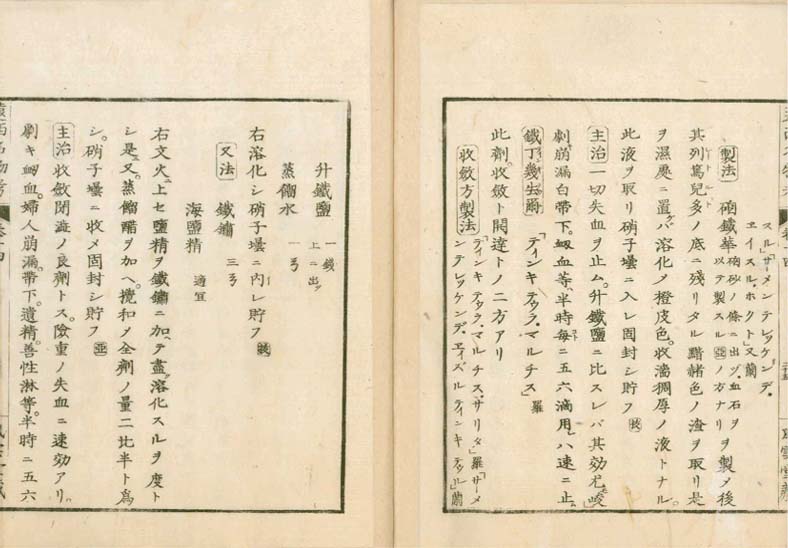 スル」サーメンテレッケンデ、
ヱイスル、ホクト」又蘭
製法 磠鐵華 磠砂ノ條ニ出ヅ、血石ヲ製〆後
以テ製スル 亞ノ方ナリ
其列篤兒多ノ底ニ殘リタル黯赭色ノ渣ヲ取リ是
ヲ濕處ニ置ケバ溶化〆橙皮色。收濇稠厚ノ液トナル
此液ヲ取リ硝子壜ニ入レ固封シ貯フ
主治 一切失血ヲ止ム。升鐵鹽ニ比スレバ其効尤峻
劇、崩漏白帶下。衂血等、半時毎ニ五六滴用レハ速ニ止ム
鐵丁幾丢爾 「ティンキテウラ・マルチス」羅
此劑。收斂ト開達トノ二方アリ
收斂方製法 「ティンキテウラ・マルチス、サリタ」羅「サーメ
ンテレッケンデ、ヱイズルティンキテウル」蘭
升鐵鹽 上ニ出ヅ 一錢
蒸餾水 一ヲ
右溶化シ硝子壜ニ內レ貯フ
又法 鐵鏽 三ヲ
海鹽精 適宜
右文火ニ上セ鹽精ヲ鐵鏽ニ加ヘテ盡ク溶化スルヲ度ト
シ是ニ又蒸餾醋ヲ加ヘ。攪和〆全劑ノ量二比半ト爲
シ。硝子壜ニ收メ固封シ貯フ 亞
主治 收斂閉澁ノ良劑トス。險重ノ失血ニ速効アリ。
劇キ衂血。婦人崩漏。帶下。遺精。善性淋等。半時ニ五六